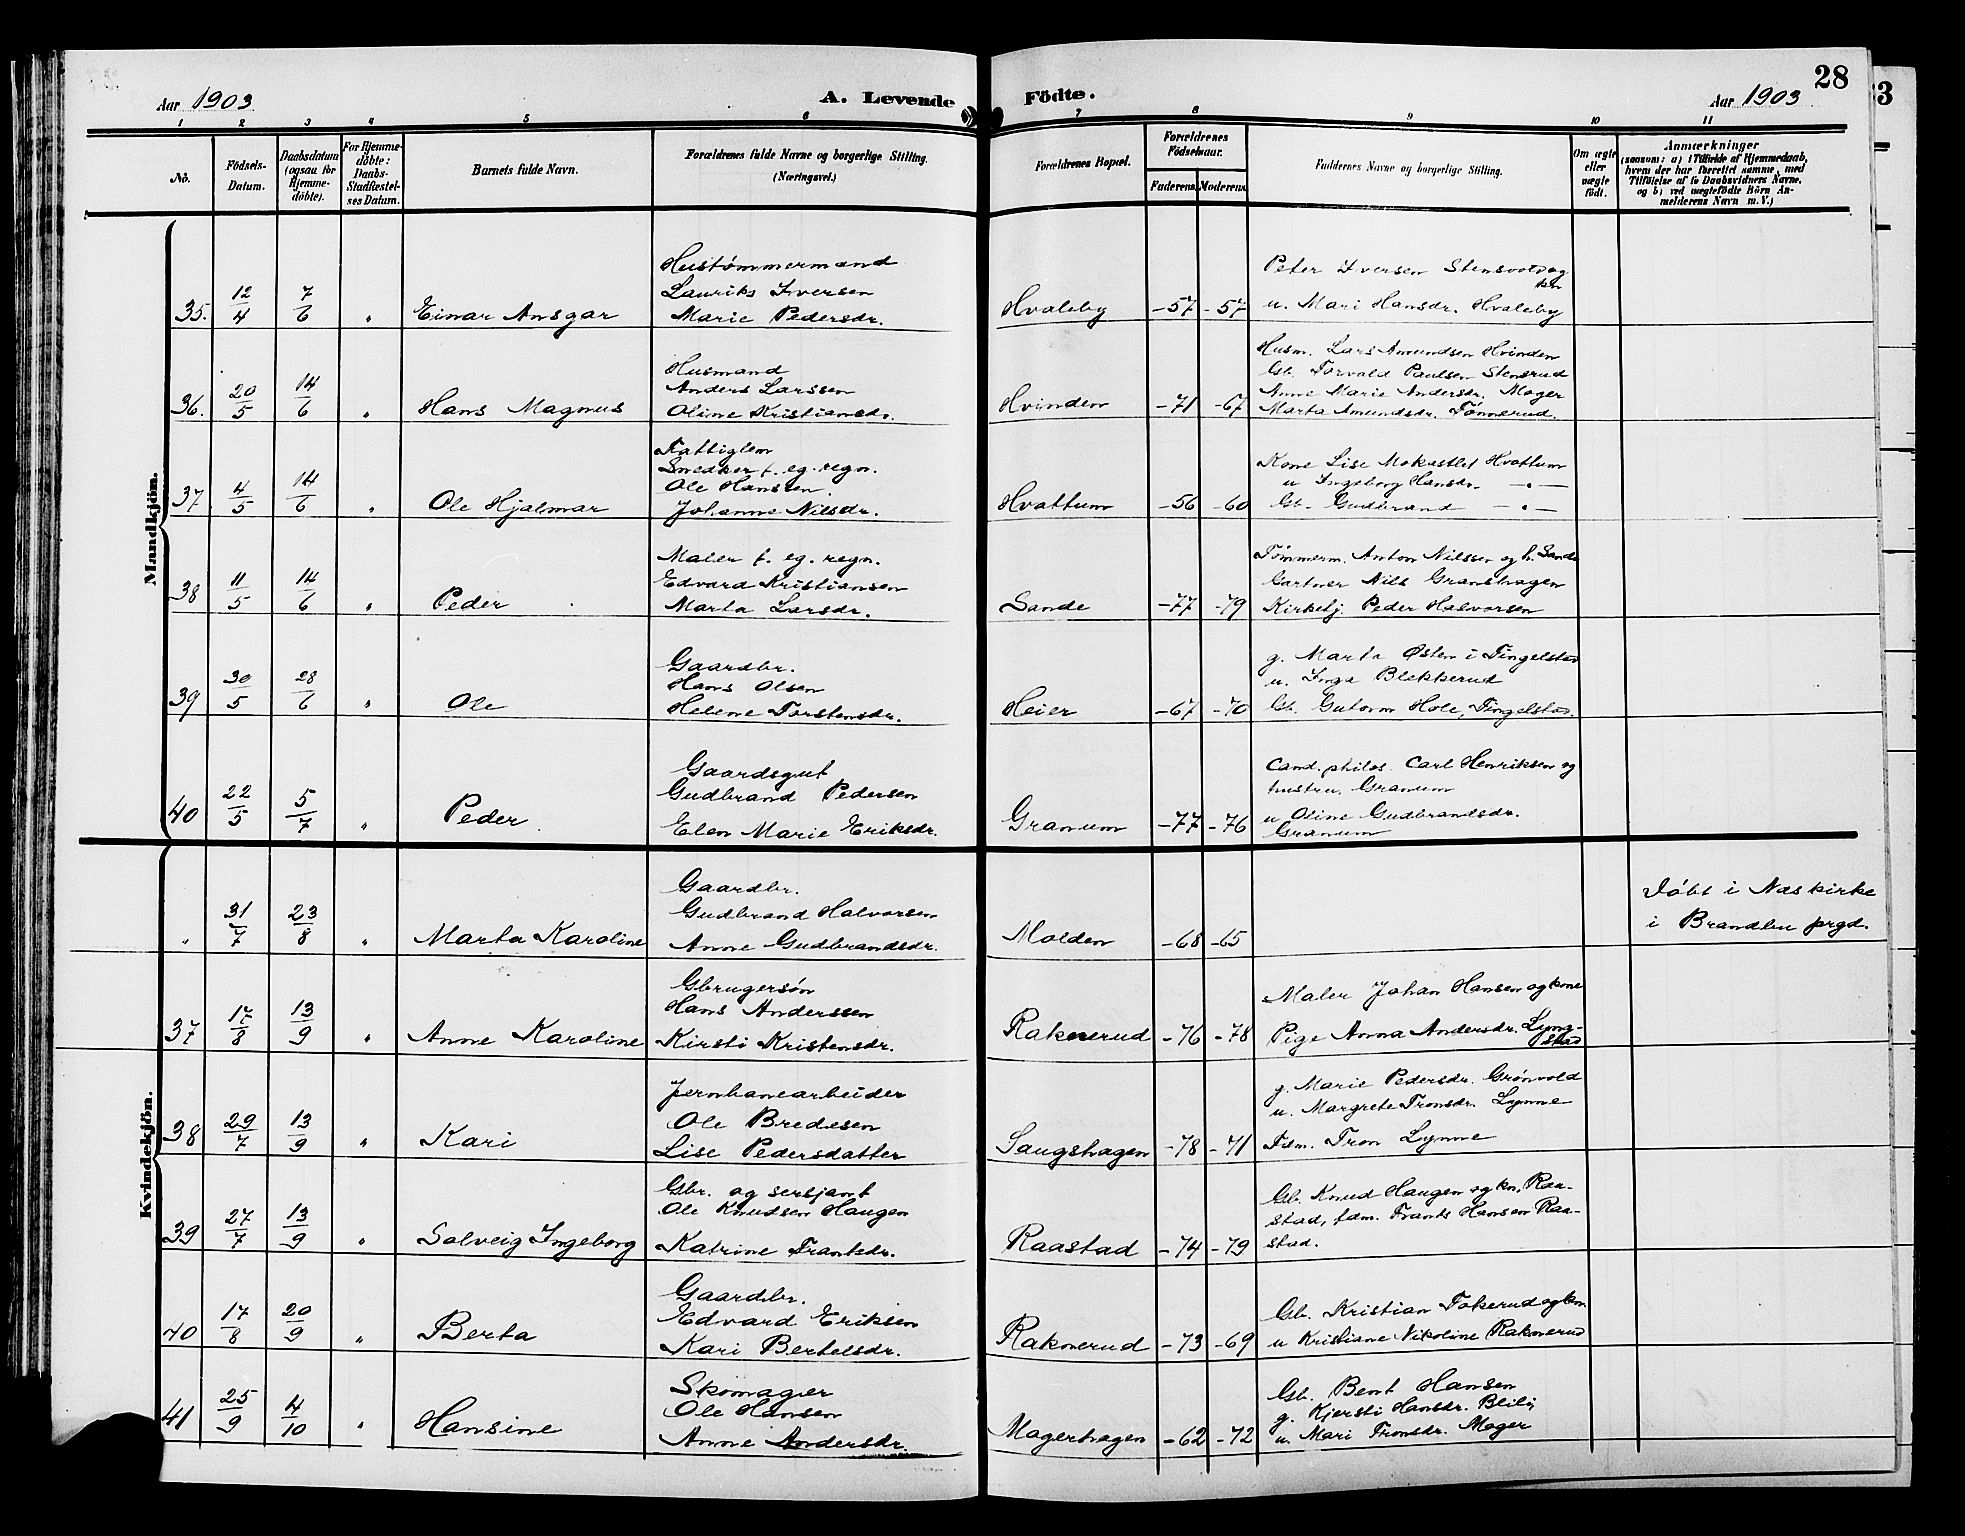 28
Aar 1903 A. Levende Födte. Aar 1903
1 2 3 4 5 6 7 8 9 10 11
No.
Födsels-
Datum.
Daabsdatum
(ogsaa for
Hjemme-
döbte).
For Hjemme-
döbte:
Daabs-
Stadfæstel-
ses Datum.
Barnets fulde Navn.
Forældrenes fulde Navne og borgerlige Stilling.
(Næringsvei.)
Forældrenes Bopæl.
Forældrenes
Födselsaar.
Faderens. Moderens.
Faddernes Navne og borgerlige Stilling.
Om ægte
eller
uægte
født.
Anmærkninger
(saasom: a) i Tilfælde af Hjemmedaab,
hvem der har forrettet samme, med
Tilföielse af to Daabsvidners Navne,
og b) ved uægtefödte Börn An-
melderens Navn m. V.)
Mandkjön.
35. 12/4 7/6 " Einar Ansgar
Hustømmermand
Lauriks Iversen
Marie Pedersdr.
Hvaleby -57 -57
Peter Iversen
u. Mari Hansdr. Hvaleby
36. 20/5 14/6 " Hans Magnus
Husmand
Anders Larssen
Oline Kristiansdr.
Hvinden -71 -67
Husm. Lars Amundsen Hvinden
Gb. Torvald Paulsen Stensrud
Anne Marie Andersdr. Moger
Marta Amundsdr. Tönnerud.
37 4/5 14/6 " Ole Hjalmar
Fattiglem
Snedker f. eg. regn.
Ole Hanssen.
Johanne Nilsdr.
Hvattum -56 -60
Kone Lise Mokastlet Hvattum
u Ingeborg Hansdr. -"-
Gb. Gudbrand -"-
38 11/5 14/6 " Peder
Maler f. eg. regn.
Edvard Kristiansen
Marta Larsdr.
Sande -77 -79
Tømmerm. Anton Nilssen og h. Sande
Gartner Nils Granshagen
Kirketj. Peder Halvorsen
39 30/5 28/6 " Ole
Gaardbr.
Hans Olsen
Helene Torstensdr.
Heier -67 -70
g. Marta Østen i Tingelstad
u. Inga Blekkerud
Gb. Gutorm Hole, Tingelstad.
40 22/5 5/7 " Peder
Gaardsgut
Gudbrand Pedersen
Elen Marie Eriksdr.
Granum -77 -76
Cand. philos. Carl Henriksen og
hustru, Granum
u Oline Gudbrandsdr.
Granum
Kvindekjön.
" 31/7 23/8 " Marta Karoline
Gaardbr.
Gudbrand Halvorsen
Anne Gudbrandsdr.
Molden -68 -65
Døbt i Næs kirke
i Brandbu prgd.
37 17/8 13/9 " Anne Karoline
Gbrugersøn
Hans Anderssen
Kirsti Kristensdr.
Raknerud -76 -78
Maler Johan Hansen og kone
Pige Anna Andersdr. Lyng-
stad
38 29/7 13/9 " Kari
Jernbanearbeider
Ole Bredesen
Lise Pedersdatter
Saugshagen -78 -71
g. Marie Pedersdr. Grönvold
u. Margrete Tronsdr. Lynne
Fdm. Tron Lynne
39 27/7 13/9 " Solveig Ingeborg
Gbr. og sersjant
Ole Knudsen Haugen
Katrine Frantsdr.
Raastad -74 -79
Gb. Knud Haugen og kn. Raa-
stad, fdm. Frants Hansen Raa-
stad.
40 17/8 20/9 " Berta
Gaardbr.
Edvard Eriksen
Kari Bertelsdr.
Raknerud -73 -69
Gb. Kristian Tokerud og kn.
u Kristiane Nikoline Raknerud
41 25/9 4/10 " Hansine
Skomager
Ole Hansen
Anne Andersdr.
Magerhagen -62 -72
Gb. Bent Hansen
g. Kjersti Hansdr. Blili
u. Mari Tronsdr. Moger